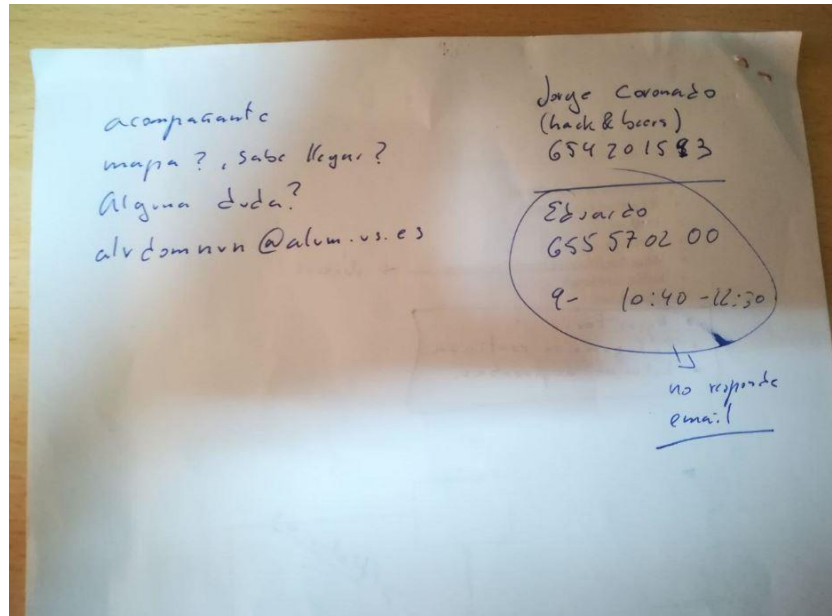 acompañante
mapa?, sabe llegar?
Alguna duda?
alvdomnun@alum.us.es
Jorge Coronado
(hack & beers)
654201593
Eduardo
655 57 02 00
9- 10:40 -12:30
no responde
email